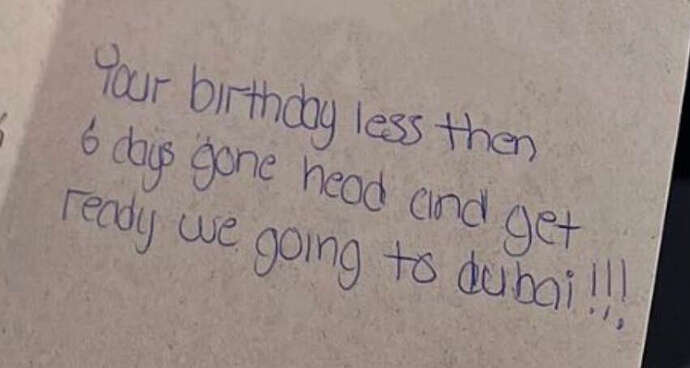 Your birthday less then
6 days gone head and get
ready we going to dubai!!!